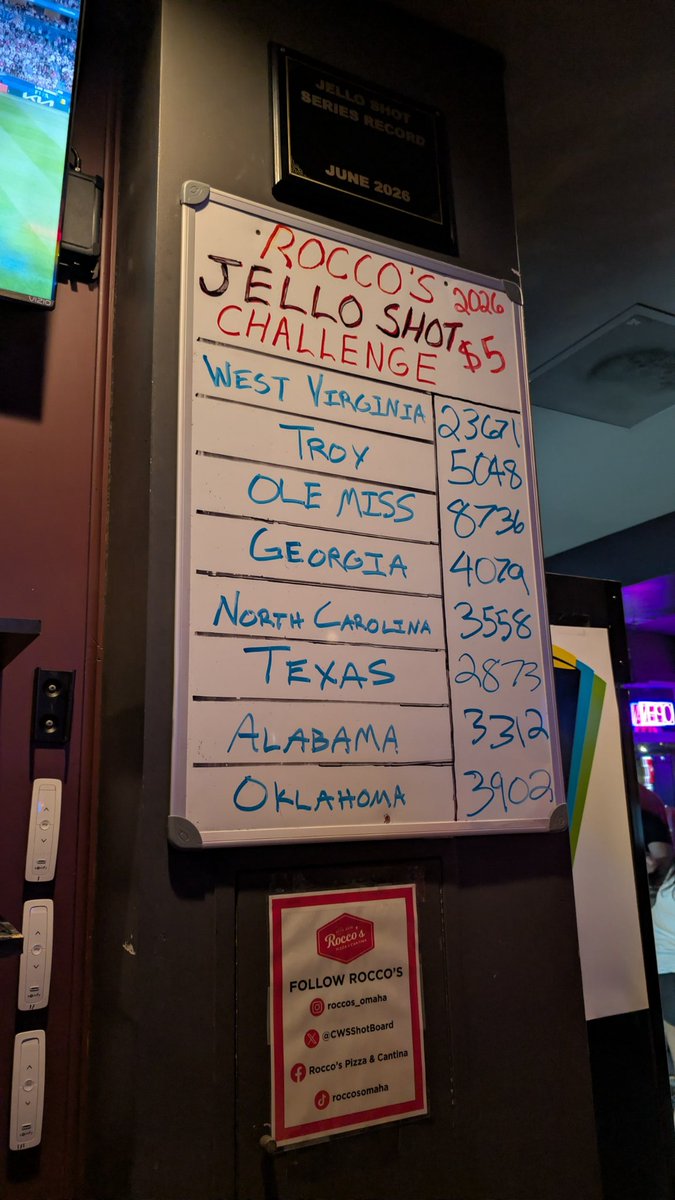 KIA
VIZIO
JELLO SHOT
SERIES RECORD
JUNE 2026
ROCCO'S
2026
JELLO SHOT
CHALLENGE
$5
WEST VIRGINIA 23671
TROY 5048
OLE MISS 8736
GEORGIA 4079
NORTH CAROLINA 3558
TEXAS 2873
ALABAMA 3312
OKLAHOMA 3902
Rocco's
PIZZA & CANTINA
FOLLOW ROCCO'S
roccos_omaha
@CWSShotBoard
Rocco's Pizza & Cantina
roccosomaha